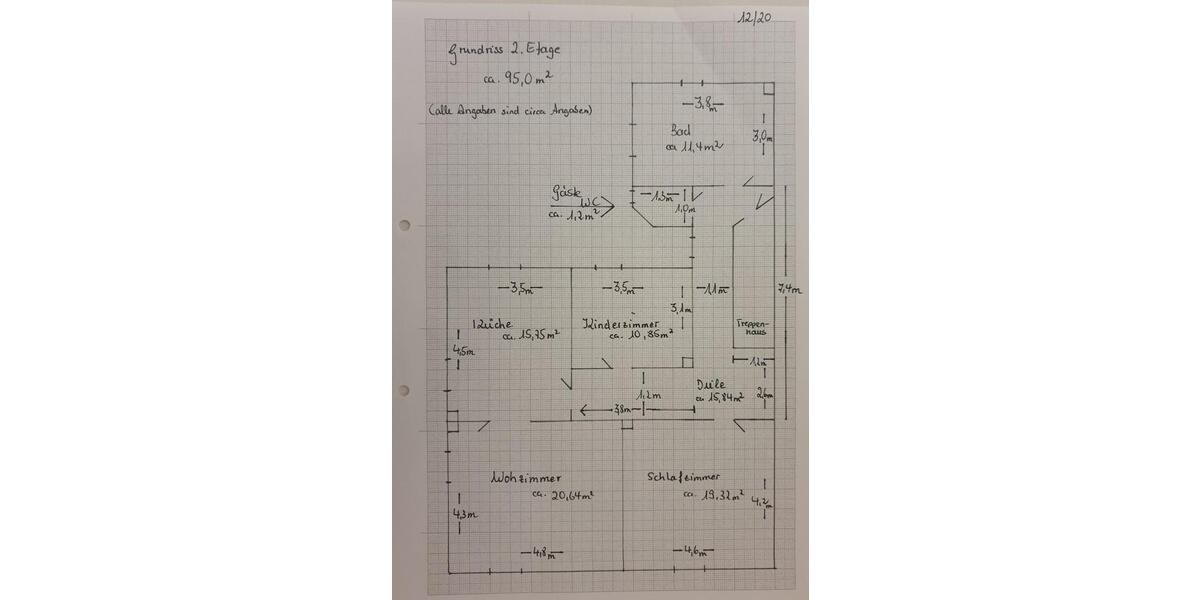 12/20
Grundriss 2. Etage
ca. 95,0 m²
(alle Angaben sind circa Angaben)
3,8m
Bad
ca 11,4 m²
3,0m
Gäste
WC
ca. 1,2 m²
1,3m
1,0m
3,5m
3,5m
1,1m
7,4m
3,1m
Küche
ca. 15,75 m²
Kinderzimmer
ca. 10,85 m²
Treppen-
haus
4,5m
1,2m
Diele
ca 15,84 m²
1,2m
2,6m
3,8m
Wohzimmer
ca. 20,64 m²
Schlafzimmer
ca. 19,32 m²
4,3m
4,2m
4,8m
4,6m